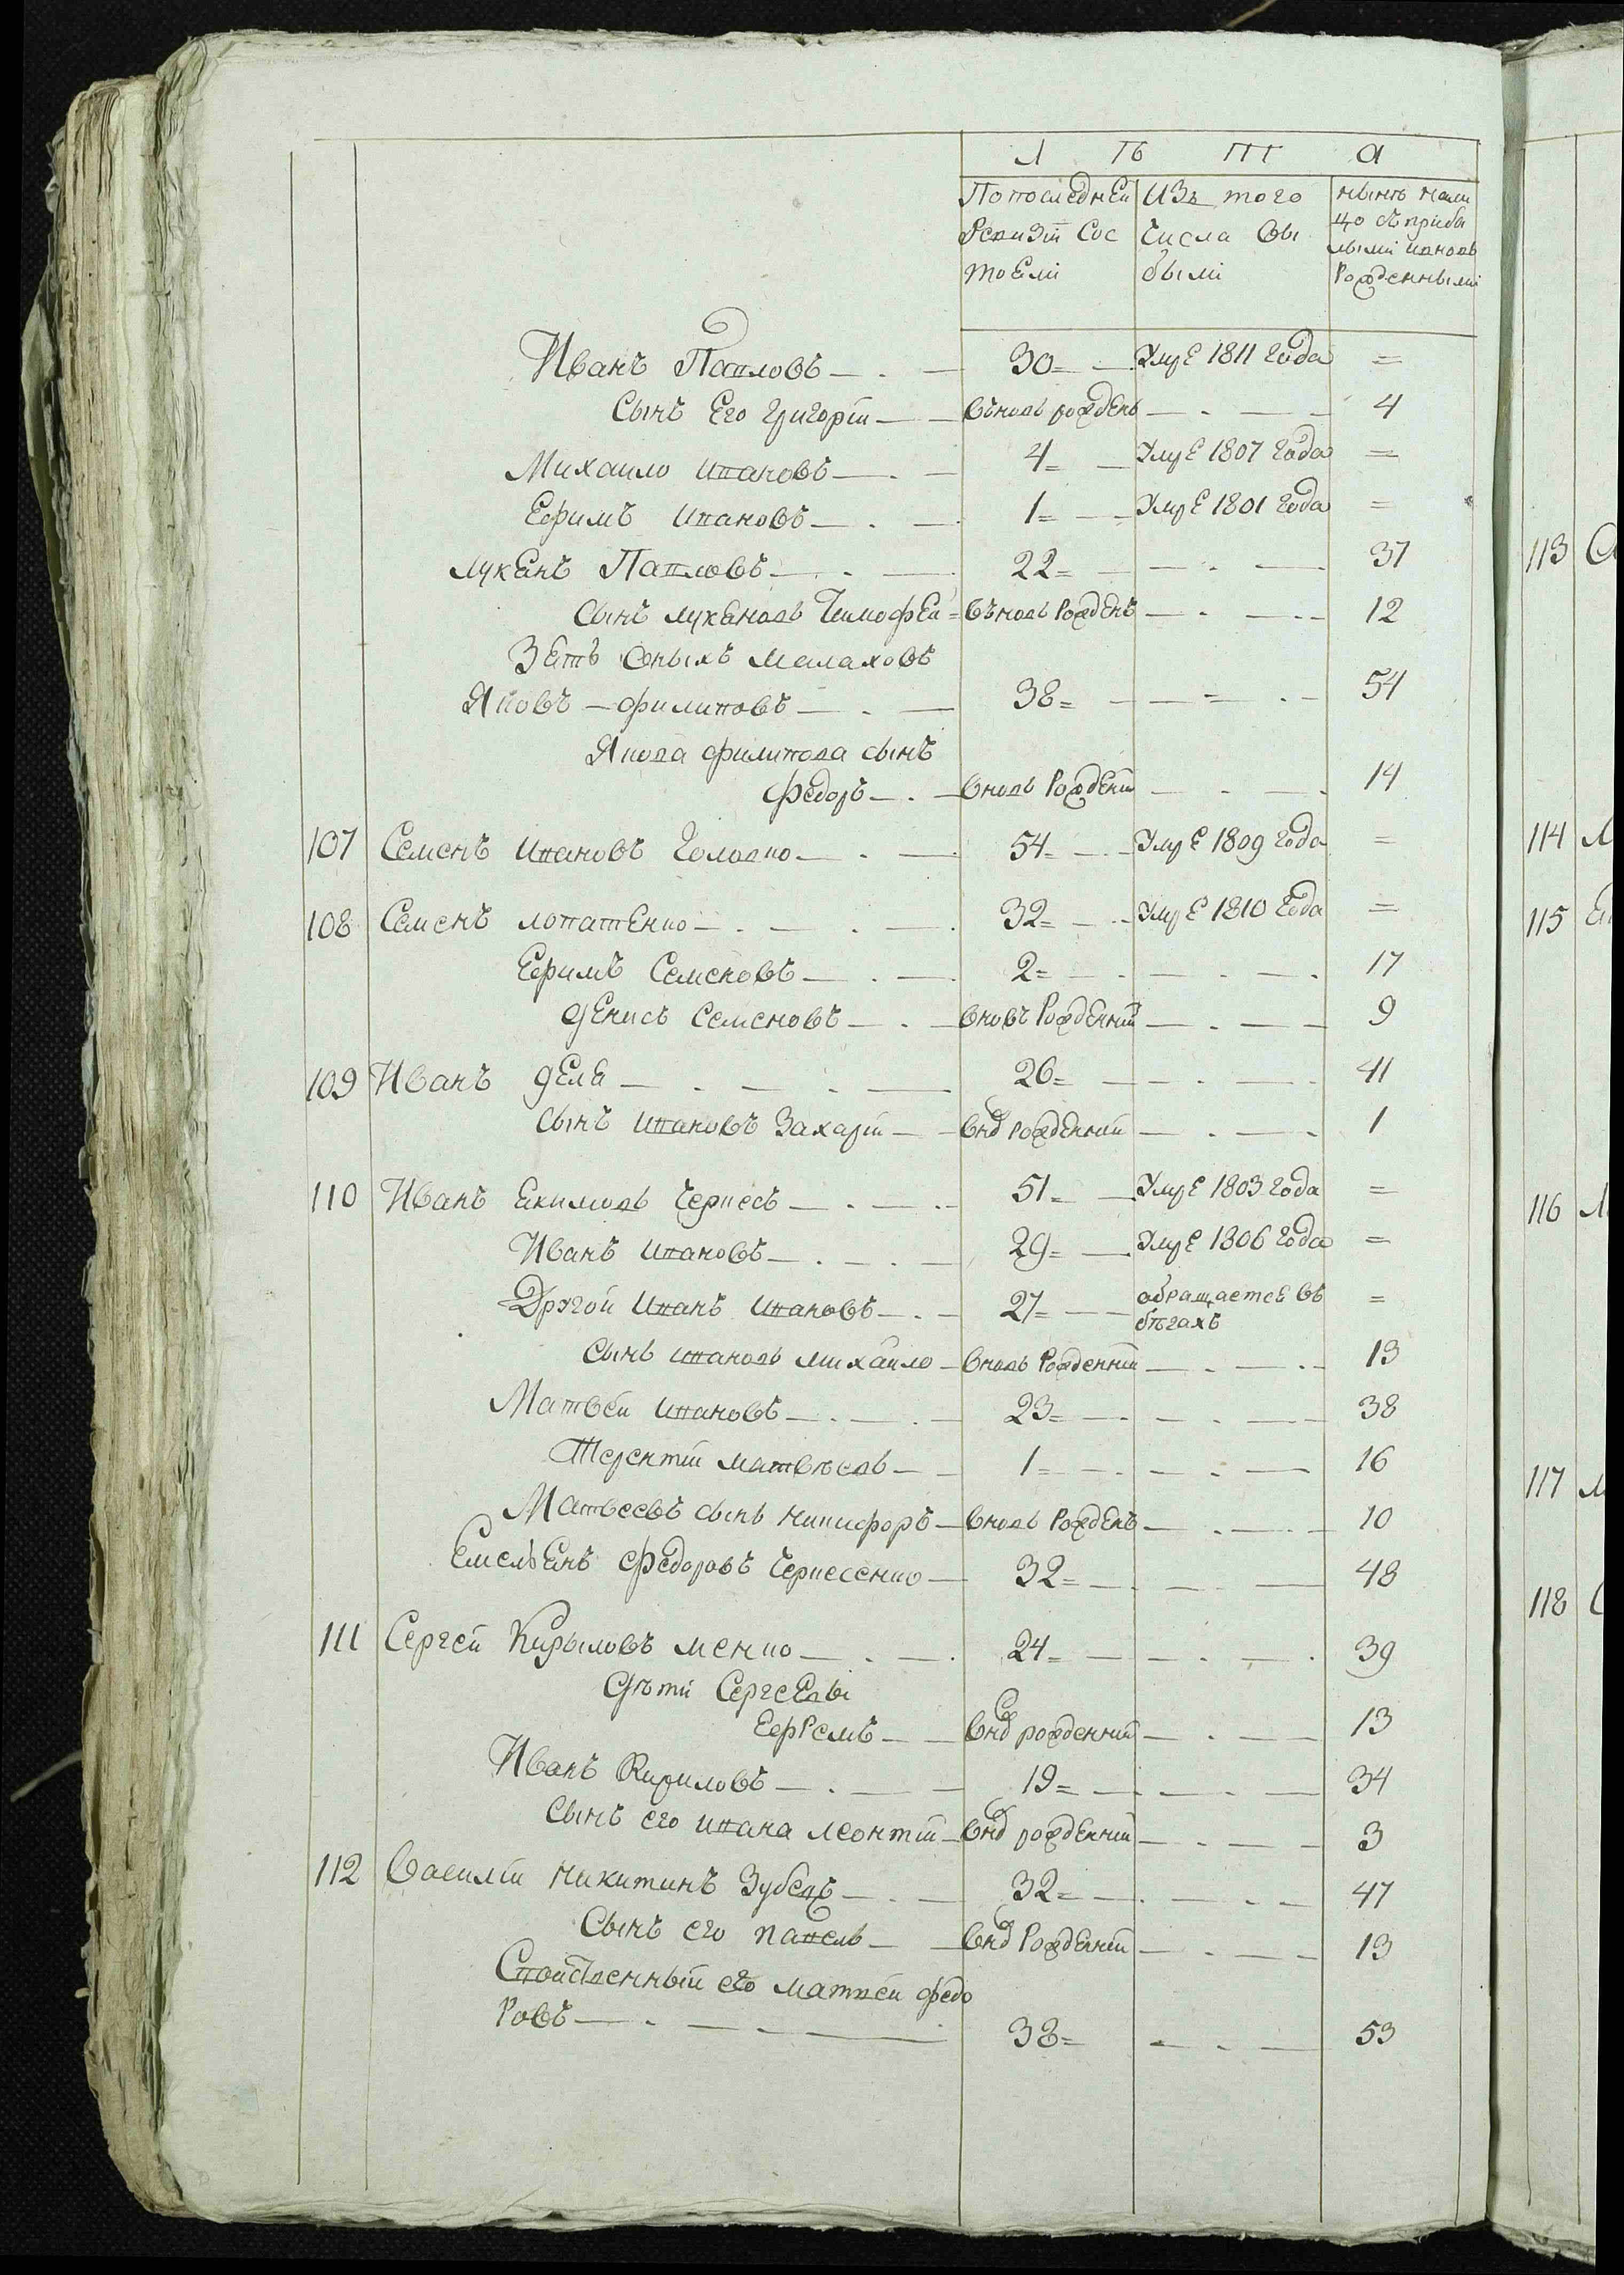 Л Ѣ Т А
По последней Изъ того нынѣ нали
Ревизіи сос числа вы цо съ прибы
тоели были лыми и вновь
рожденными
Иванъ Павловъ 30 Умре 1811 года =
Сынъ Его Григорій въновь рожденъ 4
Михайло Ивановъ 4 Умре 1807 года =
Ефимъ Ивановъ 1 Умре 1801 года =
Лукенъ Павловъ 22 37
Сынъ Лукеновъ Тимофей въновь рожденъ 12
Зеть оныхъ Малаховъ
Яковъ Филиповъ 38 54
Якова Филипова сынъ
Федоръ вновь рожденій 14
107 Семенъ Ивановъ Головко 54 Умре 1809 года =
108 Семенъ Лопатенко 32 Умре 1810 года =
Ефимъ Семеновъ 2 17
Денисъ Семеновъ вновъ рожденній 9
109 Иванъ Деле 26 41
Сынъ Ивановъ Захарій внв рожденній 1
110 Иванъ Екимовъ Черкесъ 51 Умре 1803 года =
Иванъ Ивановъ 29 Умре 1806 года =
Другой Иванъ Ивановъ 27 обращаетсе въ =
бѣгахъ
Сынъ Ивановъ Михайло вновь рожденній 13
Матвей Ивановъ 23 38
Терентій Матвѣевъ 1 16
Матвеевъ сынъ Никифоръ вновь рожденъ 10
Емельенъ Федоровъ Черкесенко 32 48
111 Сергей Кирыловъ Менко 24 39
Дѣти Сергеевы
Ефремъ внв рожденній 13
Иванъ Кириловъ 19 34
Сынъ его Ивана Леонтій внв рожденній 3
112 Василій Никитинъ Зубевъ 32 47
Сынъ его Павелъ внв рожденній 13
Свойственный его Матвей Федо
ровъ 38 53
113
114
115
116
117
118